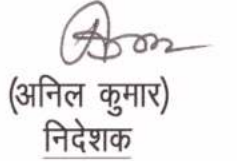 (अनिल कुमार)
निदेशक